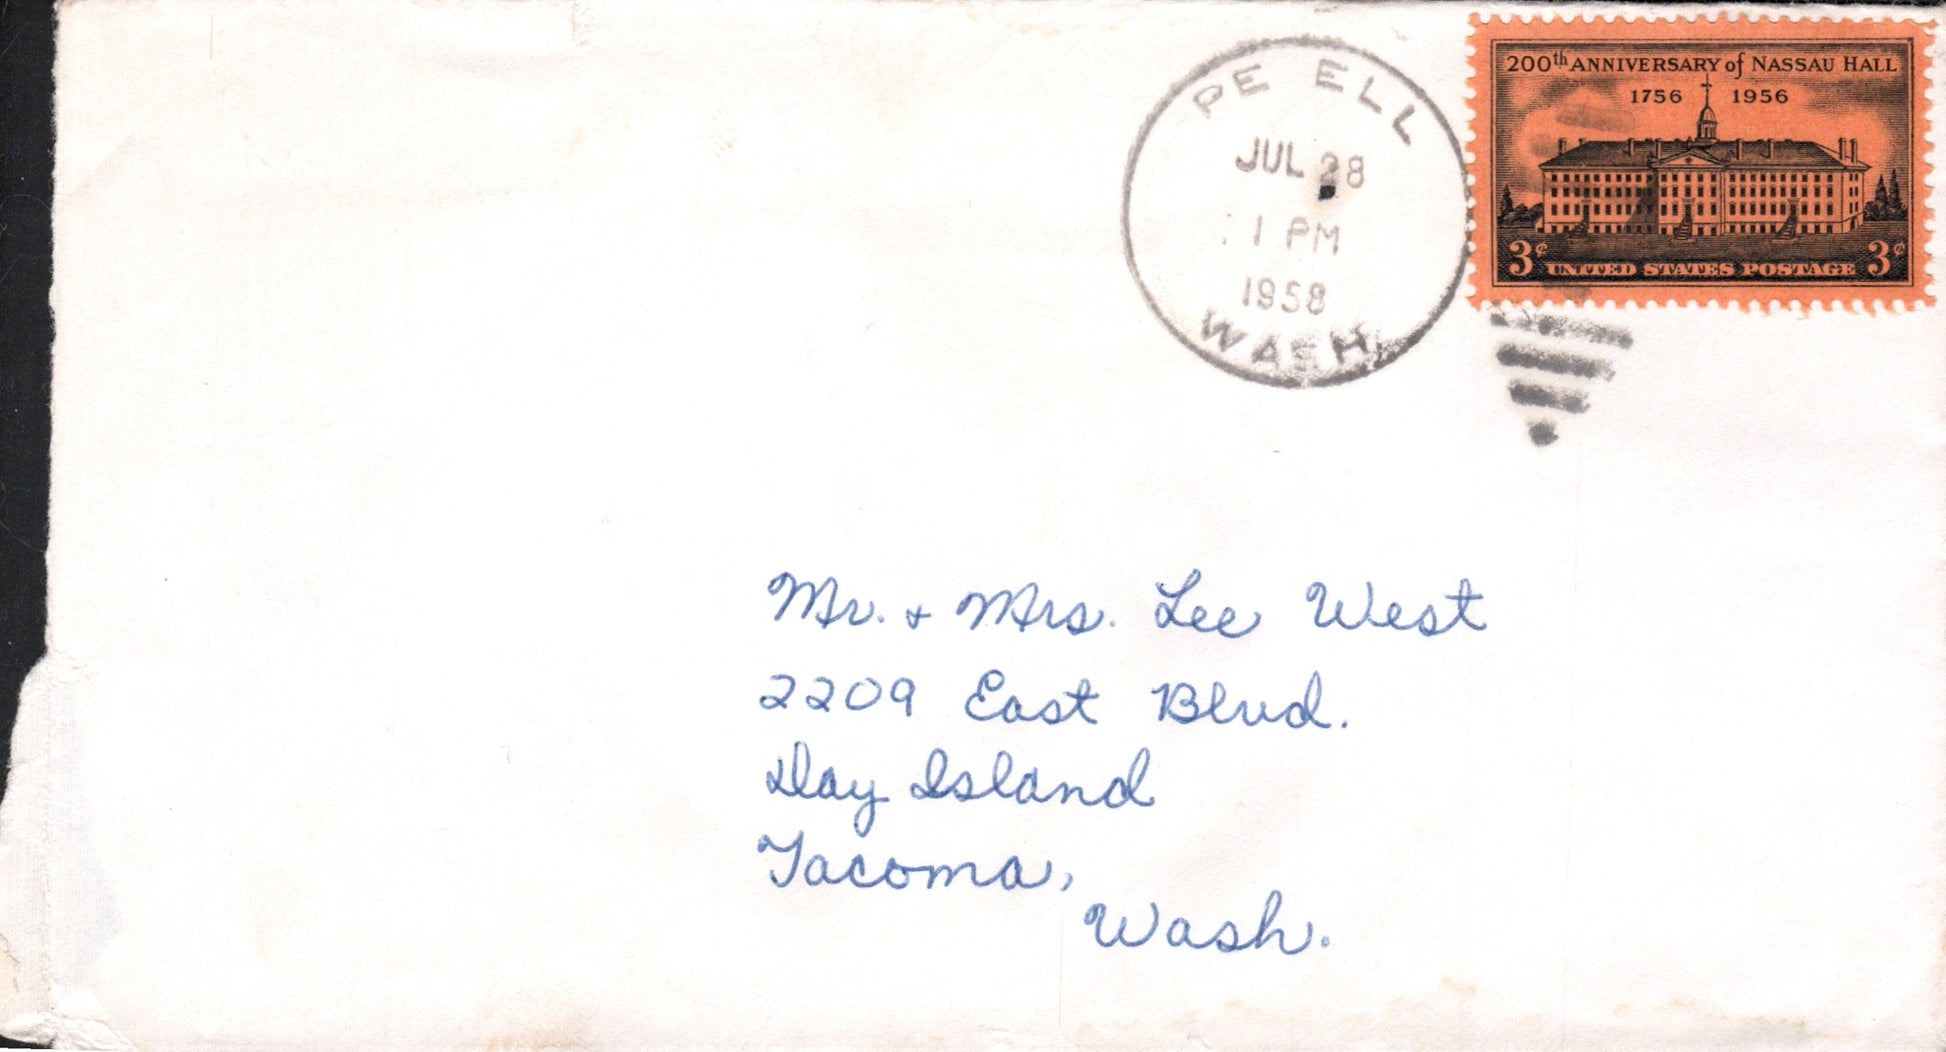 200th ANNIVERSARY of NASSAU HALL
1756 1956
3¢ UNITED STATES POSTAGE 3¢
PE ELL
JUL 28
1 PM
1958
WASH.
Mr. + Mrs. Lee West
2209 East Blvd.
Day Island
Tacoma,
Wash.